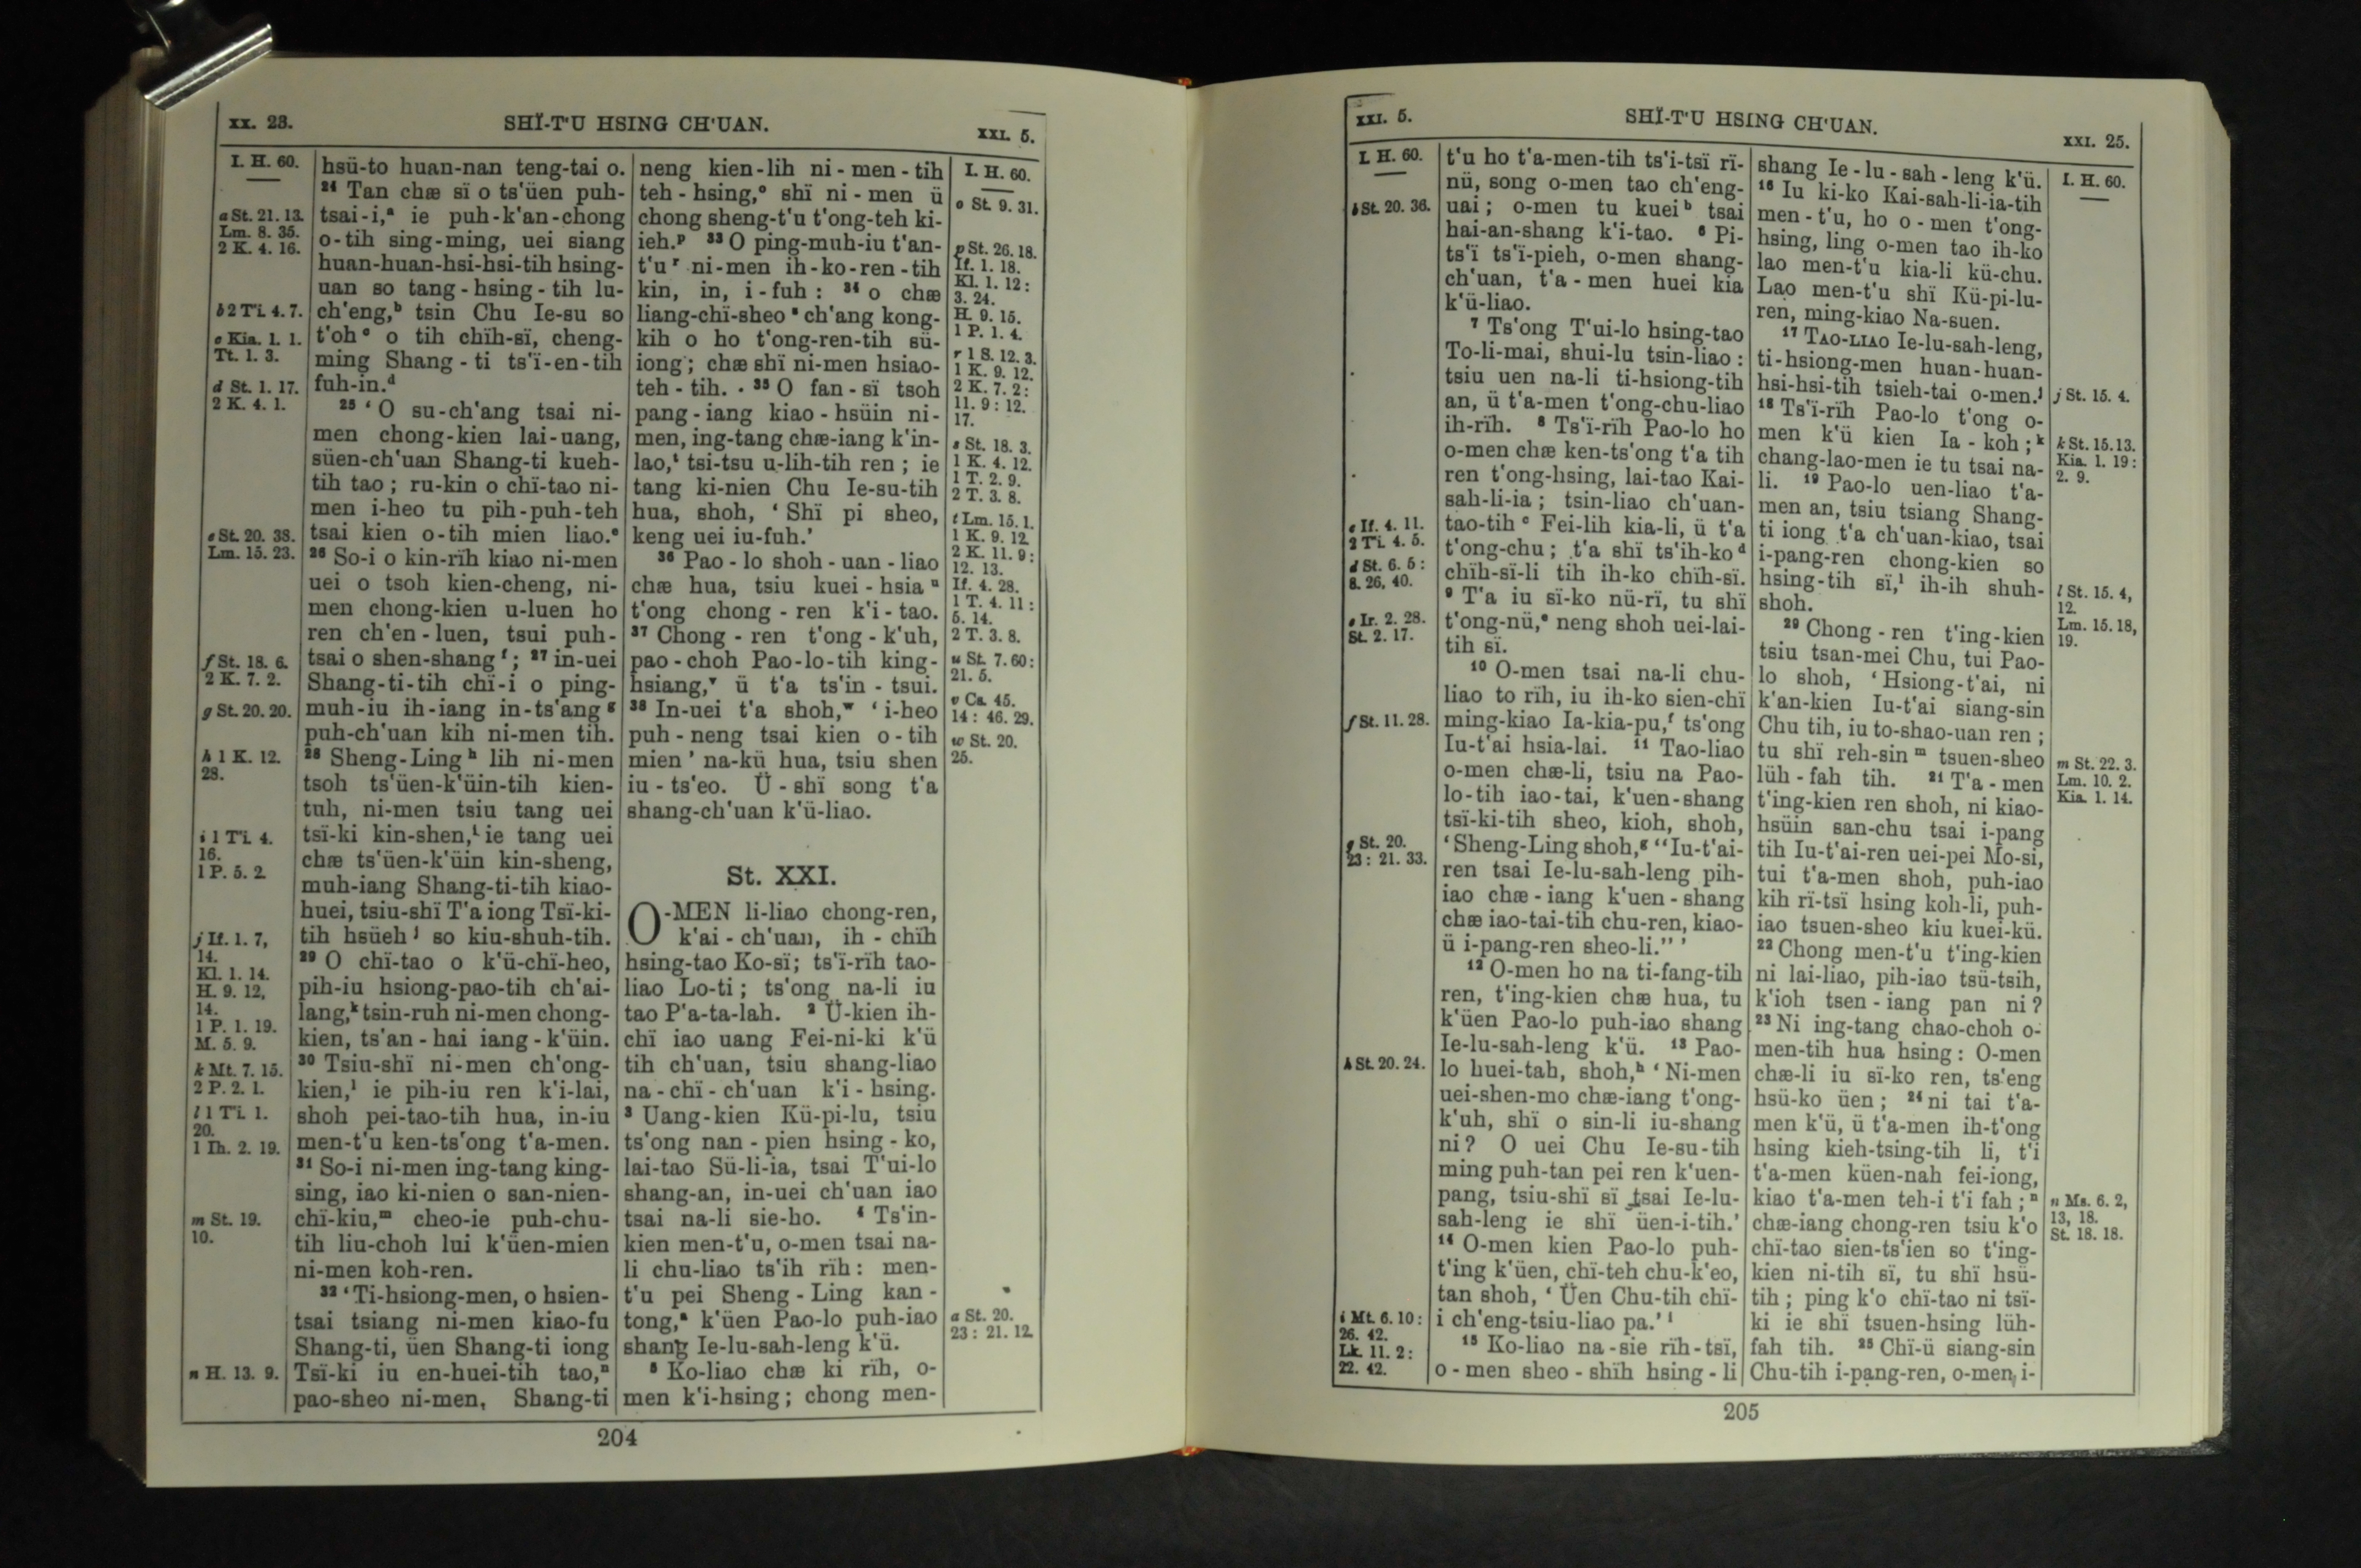 XX. 23.
SHÏ-T'U HSING CH'UAN.
XXI. 5.
I. H. 60.
a St. 21. 13.
Lm. 8. 35.
2 K. 4. 16.
b 2 Ti. 4. 7.
c Kia. 1. 1.
Tt. 1. 3.
d St. 1. 17.
2 K. 4. 1.
e St. 20. 38.
Lm. 15. 23.
f St. 18. 6.
2 K. 7. 2.
g St. 20. 20.
h 1 K. 12.
28.
i 1 Ti. 4.
16.
1 P. 5. 2.
j If. 1. 7,
14.
Kl. 1. 14.
H. 9. 12,
14.
1 P. 1. 19.
M. 5. 9.
k Mt. 7. 15.
2 P. 2. 1.
l 1 Ti. 1.
20.
1 Ih. 2. 19.
m St. 19.
10.
n H. 13. 9.
hsü-to huan-nan teng-tai o.
24 Tan chæ sï o ts'üen puh-
tsai-i,a ie puh-k'an-chong
o-tih sing-ming, uei siang
huan-huan-hsi-hsi-tih hsing-
uan so tang-hsing-tih lu-
ch'eng,b tsin Chu Ie-su so
t'oh c o tih chïh-sï, cheng-
ming Shang-ti ts'ï-en-tih
fuh-in.d
25 ‘O su-ch'ang tsai ni-
men chong-kien lai-uang,
süen-ch'uan Shang-ti kueh-
tih tao; ru-kin o chï-tao ni-
men i-heo tu pih-puh-teh
tsai kien o-tih mien liao.e
26 So-i o kin-rïh kiao ni-men
uei o tsoh kien-cheng, ni-
men chong-kien u-luen ho
ren ch'en-luen, tsui puh-
tsai o shen-shang f; 27 in-uei
Shang-ti-tih chï-i o ping-
muh-iu ih-iang in-ts'ang g
puh-ch'uan kih ni-men tih.
28 Sheng-Ling h lih ni-men
tsoh ts'üen-k'üin-tih kien-
tuh, ni-men tsiu tang uei
tsï-ki kin-shen,i ie tang uei
chæ ts'üen-k'üin kin-sheng,
muh-iang Shang-ti-tih kiao-
huei, tsiu-shï T'a iong Tsï-ki-
tih hsüeh j so kiu-shuh-tih.
29 O chï-tao o k'ü-chï-heo,
pih-iu hsiong-pao-tih ch'ai-
lang,k tsin-ruh ni-men chong-
kien, ts'an-hai iang-k'üin.
30 Tsiu-shï ni-men ch'ong-
kien,l ie pih-iu ren k'i-lai,
shoh pei-tao-tih hua, in-iu
men-t'u ken-ts'ong t'a-men.
31 So-i ni-men ing-tang king-
sing, iao ki-nien o san-nien-
chï-kiu,m cheo-ie puh-chu-
tih liu-choh lui k'üen-mien
ni-men koh-ren.
32 ‘Ti-hsiong-men, o hsien-
tsai tsiang ni-men kiao-fu
Shang-ti, üen Shang-ti iong
Tsï-ki iu en-huei-tih tao,n
pao-sheo ni-men, Shang-ti
neng kien-lih ni-men-tih
teh-hsing,o shï ni-men ü
chong sheng-t'u t'ong-teh ki-
ieh.p 33 O ping-muh-iu t'an-
t'u r ni-men ih-ko-ren-tih
kin, in, i-fuh: 34 o chæ
liang-chï-sheo s ch'ang kong-
kih o ho t'ong-ren-tih sü-
iong; chæ shï ni-men hsiao-
teh-tih. 35 O fan-sï tsoh
pang-iang kiao-hsüin ni-
men, ing-tang chæ-iang k'in-
lao,t tsi-tsu u-lih-tih ren; ie
tang ki-nien Chu Ie-su-tih
hua, shoh, ‘Shï pi sheo,
keng uei iu-fuh.’
36 Pao-lo shoh-uan-liao
chæ hua, tsiu kuei-hsia u
t'ong chong-ren k'i-tao.
37 Chong-ren t'ong-k'uh,
pao-choh Pao-lo-tih king-
hsiang,v ü t'a ts'in-tsui.
38 In-uei t'a shoh,w ‘i-heo
puh-neng tsai kien o-tih
mien’ na-kü hua, tsiu shen
iu-ts'eo. Ü-shï song t'a
shang-ch'uan k'ü-liao.
St. XXI.
O-MEN li-liao chong-ren,
k'ai-ch'uan, ih-chïh
hsing-tao Ko-sï; ts'ï-rïh tao-
liao Lo-ti; ts'ong na-li iu
tao P'a-ta-lah. 2 Ü-kien ih-
chï iao uang Fei-ni-ki k'ü
tih ch'uan, tsiu shang-liao
na-chï-ch'uan k'i-hsing.
3 Uang-kien Kü-pi-lu, tsiu
ts'ong nan-pien hsing-ko,
lai-tao Sü-li-ia, tsai T'ui-lo
shang-an, in-uei ch'uan iao
tsai na-li sie-ho. 4 Ts'in-
kien men-t'u, o-men tsai na-
li chu-liao ts'ih rïh: men-
t'u pei Sheng-Ling kan-
tong,a k'üen Pao-lo puh-iao
shang Ie-lu-sah-leng k'ü.
5 Ko-liao chæ ki rïh, o-
men k'i-hsing; chong men-
I. H. 60.
o St. 9. 31.
p St. 26. 18.
If. 1. 18.
Kl. 1. 12:
3. 24.
H. 9. 15.
1 P. 1. 4.
r 1 S. 12. 3.
1 K. 9. 12.
2 K. 7. 2:
11. 9: 12.
17.
s St. 18. 3.
1 K. 4. 12.
1 T. 2. 9.
2 T. 3. 8.
t Lm. 15. 1.
1 K. 9. 12.
2 K. 11. 9:
12. 13.
If. 4. 28.
1 T. 4. 11:
5. 14.
2 T. 3. 8.
u St. 7. 60:
21. 5.
v Ca. 45.
14: 46. 29.
w St. 20.
25.
a St. 20.
23: 21. 12.
204
XXI. 5.
SHÏ-T'U HSING CH'UAN.
XXI. 25.
I. H. 60.
b St. 20. 36.
c If. 4. 11.
2 Ti. 4. 5.
d St. 6. 5:
8. 26, 40.
e Ir. 2. 28.
St. 2. 17.
f St. 11. 28.
g St. 20.
23: 21. 33.
h St. 20. 24.
i Mt. 6. 10:
26. 42.
Lk. 11. 2:
22. 42.
t'u ho t'a-men-tih ts'i-tsï rï-
nü, song o-men tao ch'eng-
uai; o-men tu kuei b tsai
hai-an-shang k'i-tao. 6 Pi-
ts'ï ts'ï-pieh, o-men shang-
ch'uan, t'a-men huei kia
k'ü-liao.
7 Ts'ong T'ui-lo hsing-tao
To-li-mai, shui-lu tsin-liao:
tsiu uen na-li ti-hsiong-tih
an, ü t'a-men t'ong-chu-liao
ih-rïh. 8 Ts'ï-rïh Pao-lo ho
o-men chæ ken-ts'ong t'a tih
ren t'ong-hsing, lai-tao Kai-
sah-li-ia; tsin-liao ch'uan-
tao-tih c Fei-lih kia-li, ü t'a
t'ong-chu; t'a shï ts'ih-ko d
chïh-sï-li tih ih-ko chïh-sï.
9 T'a iu sï-ko nü-rï, tu shï
t'ong-nü,e neng shoh uei-lai-
tih sï.
10 O-men tsai na-li chu-
liao to rïh, iu ih-ko sien-chï
ming-kiao Ia-kia-pu,f ts'ong
Iu-t'ai hsia-lai. 11 Tao-liao
o-men chæ-li, tsiu na Pao-
lo-tih iao-tai, k'uen-shang
tsï-ki-tih sheo, kioh, shoh,
‘Sheng-Ling shoh,g “Iu-t'ai-
ren tsai Ie-lu-sah-leng pih-
iao chæ-iang k'uen-shang
chæ iao-tai-tih chu-ren, kiao-
ü i-pang-ren sheo-li.”’
12 O-men ho na ti-fang-tih
ren, t'ing-kien chæ hua, tu
k'üen Pao-lo puh-iao shang
Ie-lu-sah-leng k'ü. 13 Pao-
lo huei-tah, shoh,h ‘Ni-men
uei-shen-mo chæ-iang t'ong-
k'uh, shï o sin-li iu-shang
ni? O uei Chu Ie-su-tih
ming puh-tan pei ren k'uen-
pang, tsiu-shï sï tsai Ie-lu-
sah-leng ie shï üen-i-tih.’
14 O-men kien Pao-lo puh-
t'ing k'üen, chï-teh chu-k'eo,
tan shoh, ‘Üen Chu-tih chï-
i ch'eng-tsiu-liao pa.’ i
15 Ko-liao na-sie rïh-tsï,
o-men sheo-shïh hsing-li
shang Ie-lu-sah-leng k'ü.
16 Iu ki-ko Kai-sah-li-ia-tih
men-t'u, ho o-men t'ong-
hsing, ling o-men tao ih-ko
lao men-t'u kia-li kü-chu.
Lao men-t'u shï Kü-pi-lu-
ren, ming-kiao Na-suen.
17 TAO-LIAO Ie-lu-sah-leng,
ti-hsiong-men huan-huan-
hsi-hsi-tih tsieh-tai o-men.j
18 Ts'ï-rïh Pao-lo t'ong o-
men k'ü kien Ia-koh;k
chang-lao-men ie tu tsai na-
li. 19 Pao-lo uen-liao t'a-
men an, tsiu tsiang Shang-
ti iong t'a ch'uan-kiao, tsai
i-pang-ren chong-kien so
hsing-tih sï,l ih-ih shuh-
shoh.
20 Chong-ren t'ing-kien
tsiu tsan-mei Chu, tui Pao-
lo shoh, ‘Hsiong-t'ai, ni
k'an-kien Iu-t'ai siang-sin
Chu tih, iu to-shao-uan ren;
tu shï reh-sin m tsuen-sheo
lüh-fah tih. 21 T'a-men
t'ing-kien ren shoh, ni kiao-
hsüin san-chu tsai i-pang
tih Iu-t'ai-ren uei-pei Mo-si,
tui t'a-men shoh, puh-iao
kih rï-tsï hsing koh-li, puh-
iao tsuen-sheo kiu kuei-kü.
22 Chong men-t'u t'ing-kien
ni lai-liao, pih-iao tsü-tsih,
k'ioh tsen-iang pan ni?
23 Ni ing-tang chao-choh o-
men-tih hua hsing: O-men
chæ-li iu sï-ko ren, ts'eng
hsü-ko üen; 24 ni tai t'a-
men k'ü, ü t'a-men ih-t'ong
hsing kieh-tsing-tih li, t'i
t'a-men küen-nah fei-iong,
kiao t'a-men teh-i t'i fah;n
chæ-iang chong-ren tsiu k'o
chï-tao sien-ts'ien so t'ing-
kien ni-tih sï, tu shï hsü-
tih; ping k'o chï-tao ni tsï-
ki ie shï tsuen-hsing lüh-
fah tih. 25 Chï-ü siang-sin
Chu-tih i-pang-ren, o-men i-
I. H. 60.
j St. 15. 4.
k St. 15. 13.
Kia. 1. 19:
2. 9.
l St. 15. 4,
12.
Lm. 15. 18,
19.
m St. 22. 3.
Lm. 10. 2.
Kia. 1. 14.
n Ms. 6. 2,
13, 18.
St. 18. 18.
205